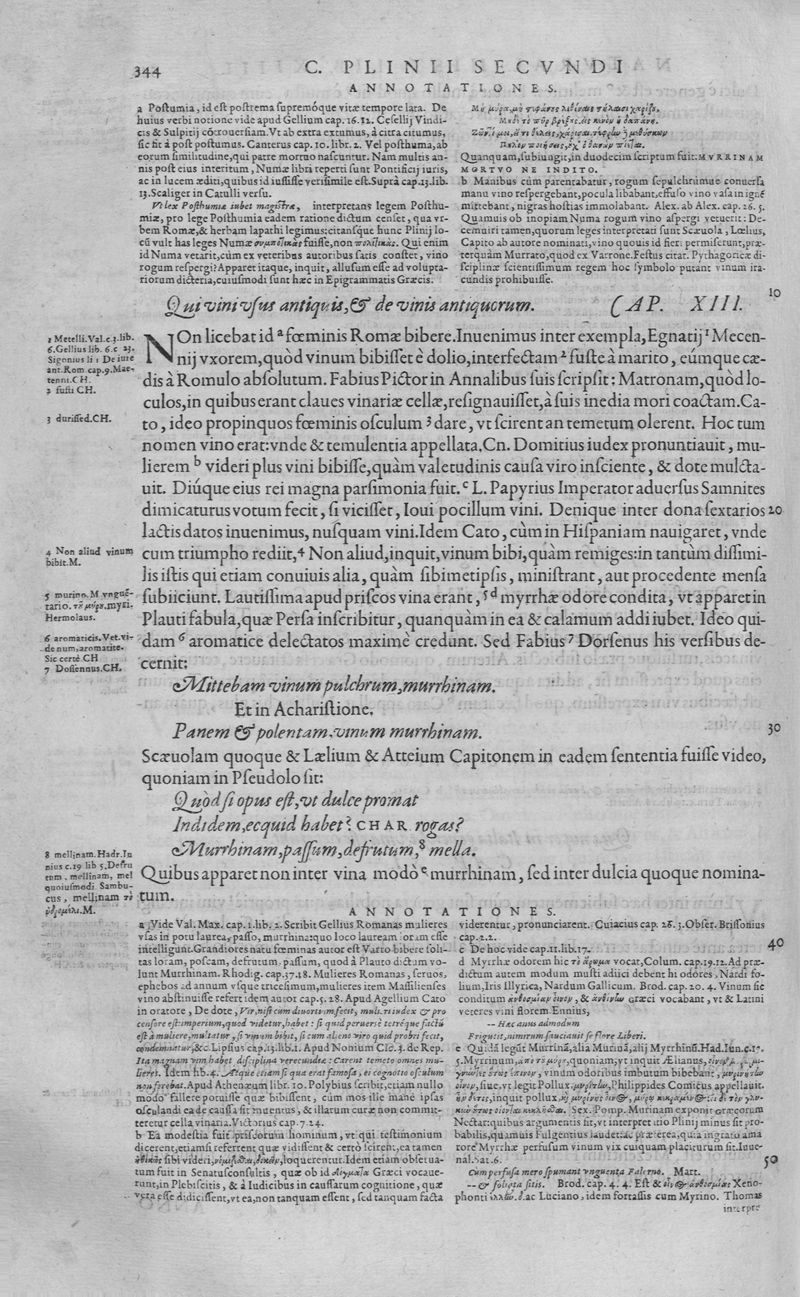 344
C. PLINII SECVNDI
ANNOTATIONES.
a Postumia, id est postrema supremóque vitæ tempore lata. De
huius verbi notione vide apud Gellium cap.16.12. Cesellij Vindi-
cis & Sulpitij cōtrouersiam. Vt ab extra extumus, à citra citumus,
sic fit à post postumus. Canterus cap.10.libr.2. Vel posthuma, ab
eorum similitudine, qui patre mortuo nascuntur. Nam multis an-
nis post eius interitum, Numæ libri reperti sunt Pontificij iuris,
ac in lucem æditi, quibus id iussisse verisimile est. Suprà cap.13.lib.
13. Scaliger in Catulli versu.
Vt lex Posthumia iubet magistra, interpretans legem Posthu-
miæ, pro lege Posthumia eadem ratione dictum censet, qua vr-
bem Romæ, & herbam lapathi legimus: citansque hunc Plinij lo-
cū vult has leges Numæ fuisse, non Qui enim
id Numa vetarit, cùm ex veteribus autoribus satis constet, vino
rogum respergi? Apparet itaque, inquit, allusum esse ad volupta-
riorum dicteria, cuiusmodi sunt hæc in Epigrammatis Græcis.
Quanquam, subiungit, in duodecim scriptum fuit: MVRRINAM
MORTVO NE INDITO.
b Manibus cùm parentabatur, rogum sepulchrumue conuersa
manu vino respergebant, pocula libabant, effuso vino vasa in ignē
mittebant, nigras hostias immolabant. Alex. ab Alex. cap.26.5.
Quamuis ob inopiam Numa rogum vino aspergi vetuerit: De-
cemuiri tamen, quorum leges interpretati sunt Scæuola, Lælius,
Capito ab autore nominati, vino quouis id fieri permiserunt, præ-
terquàm Murrato, quod ex Varrone. Festus citat. Pythagoricæ di-
sciplinæ scientissimum regem hoc symbolo putant vinum ira-
cundis prohibuisse.
10
Qui vini vsus antiquis, & de vinis antiquorum. CAP. XIII.
1 Metelli. Val.c.3.lib.
6. Gellius lib.6.c 23.
Sigonius li 1 De iure
ant. Rom cap.9. Mæ-
tenni. CH.
2 fusti CH.
3 durissed. CH.
NOn licebat id a fœminis Romæ bibere. Inuenimus inter exempla, Egnatij 1 Mecen-
nij vxorem, quòd vinum bibisset è dolio, interfectam 2 fuste à marito, eúmque cæ-
dis à Romulo absolutum. Fabius Pictor in Annalibus suis scripsit: Matronam, quòd lo-
culos, in quibus erant claues vinariæ cellæ, resignauisset, à suis inedia mori coactam. Ca-
to, ideo propinquos fœminis osculum 3 dare, vt scirent an temetum olerent. Hoc tum
nomen vino erat: vnde & temulentia appellata. Cn. Domitius iudex pronuntiauit, mu-
lierem b videri plus vini bibisse, quàm valetudinis causa viro insciente, & dote mulcta-
uit. Diúque eius rei magna parsimonia fuit. c L. Papyrius Imperator aduersus Samnites
dimicaturus votum fecit, si vicisset, Ioui pocillum vini. Denique inter dona sextarios 20
lactis datos inuenimus, nusquam vini. Idem Cato, cùm in Hispaniam nauigaret, vnde
cum triumpho rediit, 4 Non aliud, inquit, vinum bibi, quàm remiges: in tantùm dissimi-
lis istis qui etiam conuiuis alia, quàm sibimetipsis, ministrant, aut procedente mensa
subiiciunt. Lautissima apud priscos vina erant, 5 d myrrhæ odore condita, vt apparet in
Plauti fabula, quæ Persa inscribitur, quanquàm in ea & calamum addi iubet. Ideo qui-
dam 6 aromatice delectatos maximè credunt. Sed Fabius 7 Dorsenus his versibus de-
cernit:
4 Non aliud vinum
bibit. M.
5 murino. M vnguē-
tario. myri.
Hermolaus.
6 aromaticis. Vet. vi-
de num, aromatite.
Sic certè CH
7 Dossennus. CH.
Mittebam vinum pulchrum, murrhinam.
Et in Acharistione.
Panem & polentam, vinum murrhinam. 30
Scæuolam quoque & Lælium & Atteium Capitonem in eadem sententia fuisse video,
quoniam in Pseudolo sit:
Quòd si opus est, vt dulce promat
Indidem, ecquid habet? CHAR. rogas?
Murrhinam, passum, defrutum, 8 mella.
Quibus apparet non inter vina modò e murrhinam, sed inter dulcia quoque nomina-
tum.
8 mellinam. Hadr. Iu
nius c.19 lib 5, Defru
tum, mellinam, mel
quoiusmodi Sambu-
cus, mellinam
M.
ANNOTATIONES.
a Vide Val. Max. cap.1.lib.2. Scribit Gellius Romanas mulieres
vsas in potu laurea, passo, murrhina: quo loco lauream loram esse
intelligunt. Grandiores natu fœminas autor est Varro bibere soli-
tas loram, passam, defrutum, passum, quod à Plauto dictum vo-
lunt Murrhinam. Rhodig. cap.37.48. Mulieres Romanas, seruos,
ephebos ad annum vsque tricesimum, mulieres item Massilienses
vino abstinuisse refert idem autor cap.5.28. Apud Agellium Cato
in oratore, De dote, Vir, nisi cum diuortium fecit, mulieri iudex & pro
censore est: imperium, quod videtur, habet: si quid peruersè tetréque factū
est à muliere, multatur, si vinum bibit, si cum alieno viro quid probri fecit,
condemnatur, &c. Lipsius cap.13.lib.1. Apud Nonium Cic.3. de Rep.
Ita magnam vim habet disciplina verecundiæ: Carent temeto omnes mu-
lieres. Idem hb.4. Atque etiam si qua erat famosa, ei cognatio osculum
non ferebat. Apud Athenæum libr.10. Polybius scribit, etiam nullo
modo fallere potuisse quæ bibissent, cùm mos ille manè ipsas
osculandi eâ de caussa sit inuentus, & illarum curæ non commit-
teretur cella vinaria. Victorius cap.7.24.
b Ea modestia fuit priscorum hominum, vt qui testimonium
dicerent, etiamsi referrent quæ vidissent & certò scirent, ea tamen
sibi videri, loquerentur. Idem etiam obserua-
tum fuit in Senatusconsultis, quæ ob id Græci vocaue-
runt, in Plebiscitis, & à Iudicibus in caussarum cognitione, quæ
vera esse didicissent, vt ea, non tanquam essent, sed tanquam facta
viderentur, pronunciarent. Cuiacius cap.26.3. Obser. Brissonius
cap.2.2.
c De hoc vide cap.11.lib.17.
40
d Myrrhæ odorem hic vocat, Colum. cap.19.12. Ad præ-
dictum autem modum musti adiici debent hi odores, Nardi fo-
lium, Iris Illyrica, Nardum Gallicum. Brod. cap.20.4. Vinum sic
conditum & græci vocabant, vt & Latini
veteres vini florem. Ennius,
-- Hac annis admodum
Friguit, nimirum sauciauit se flore Liberi.
e Quidā legūt Murrinā, alia Murinā, alij Myrrhinū. Had. Iun. c.17.
5. Myrrinum, quoniam, vt inquit Ælianus,
vinum odoribus imbutum bibebant,
siue, vt legit Pollux Philippides Comicus appellauit.
inquit pollux,
Sex. Pomp. Murinam exponit græcorum
Nectar: quibus argumentis sit, vt interpretatio Plinij minus sit pro-
babilis, quamuis Fulgentius laudet: ac præterea, quia ingrato ama
rore Myrrhæ perfusum vinum vix cuiquam placiturum sit. Iuue-
nal. Sat.6.
50
Cùm perfusa mero spumant vnguenta Falerno. Mart.
-- & foliata sitis. Brod. cap.4.4. Est & Xeno-
phonti ac Luciano, idem fortassis cum Myrino. Thomas
interpre